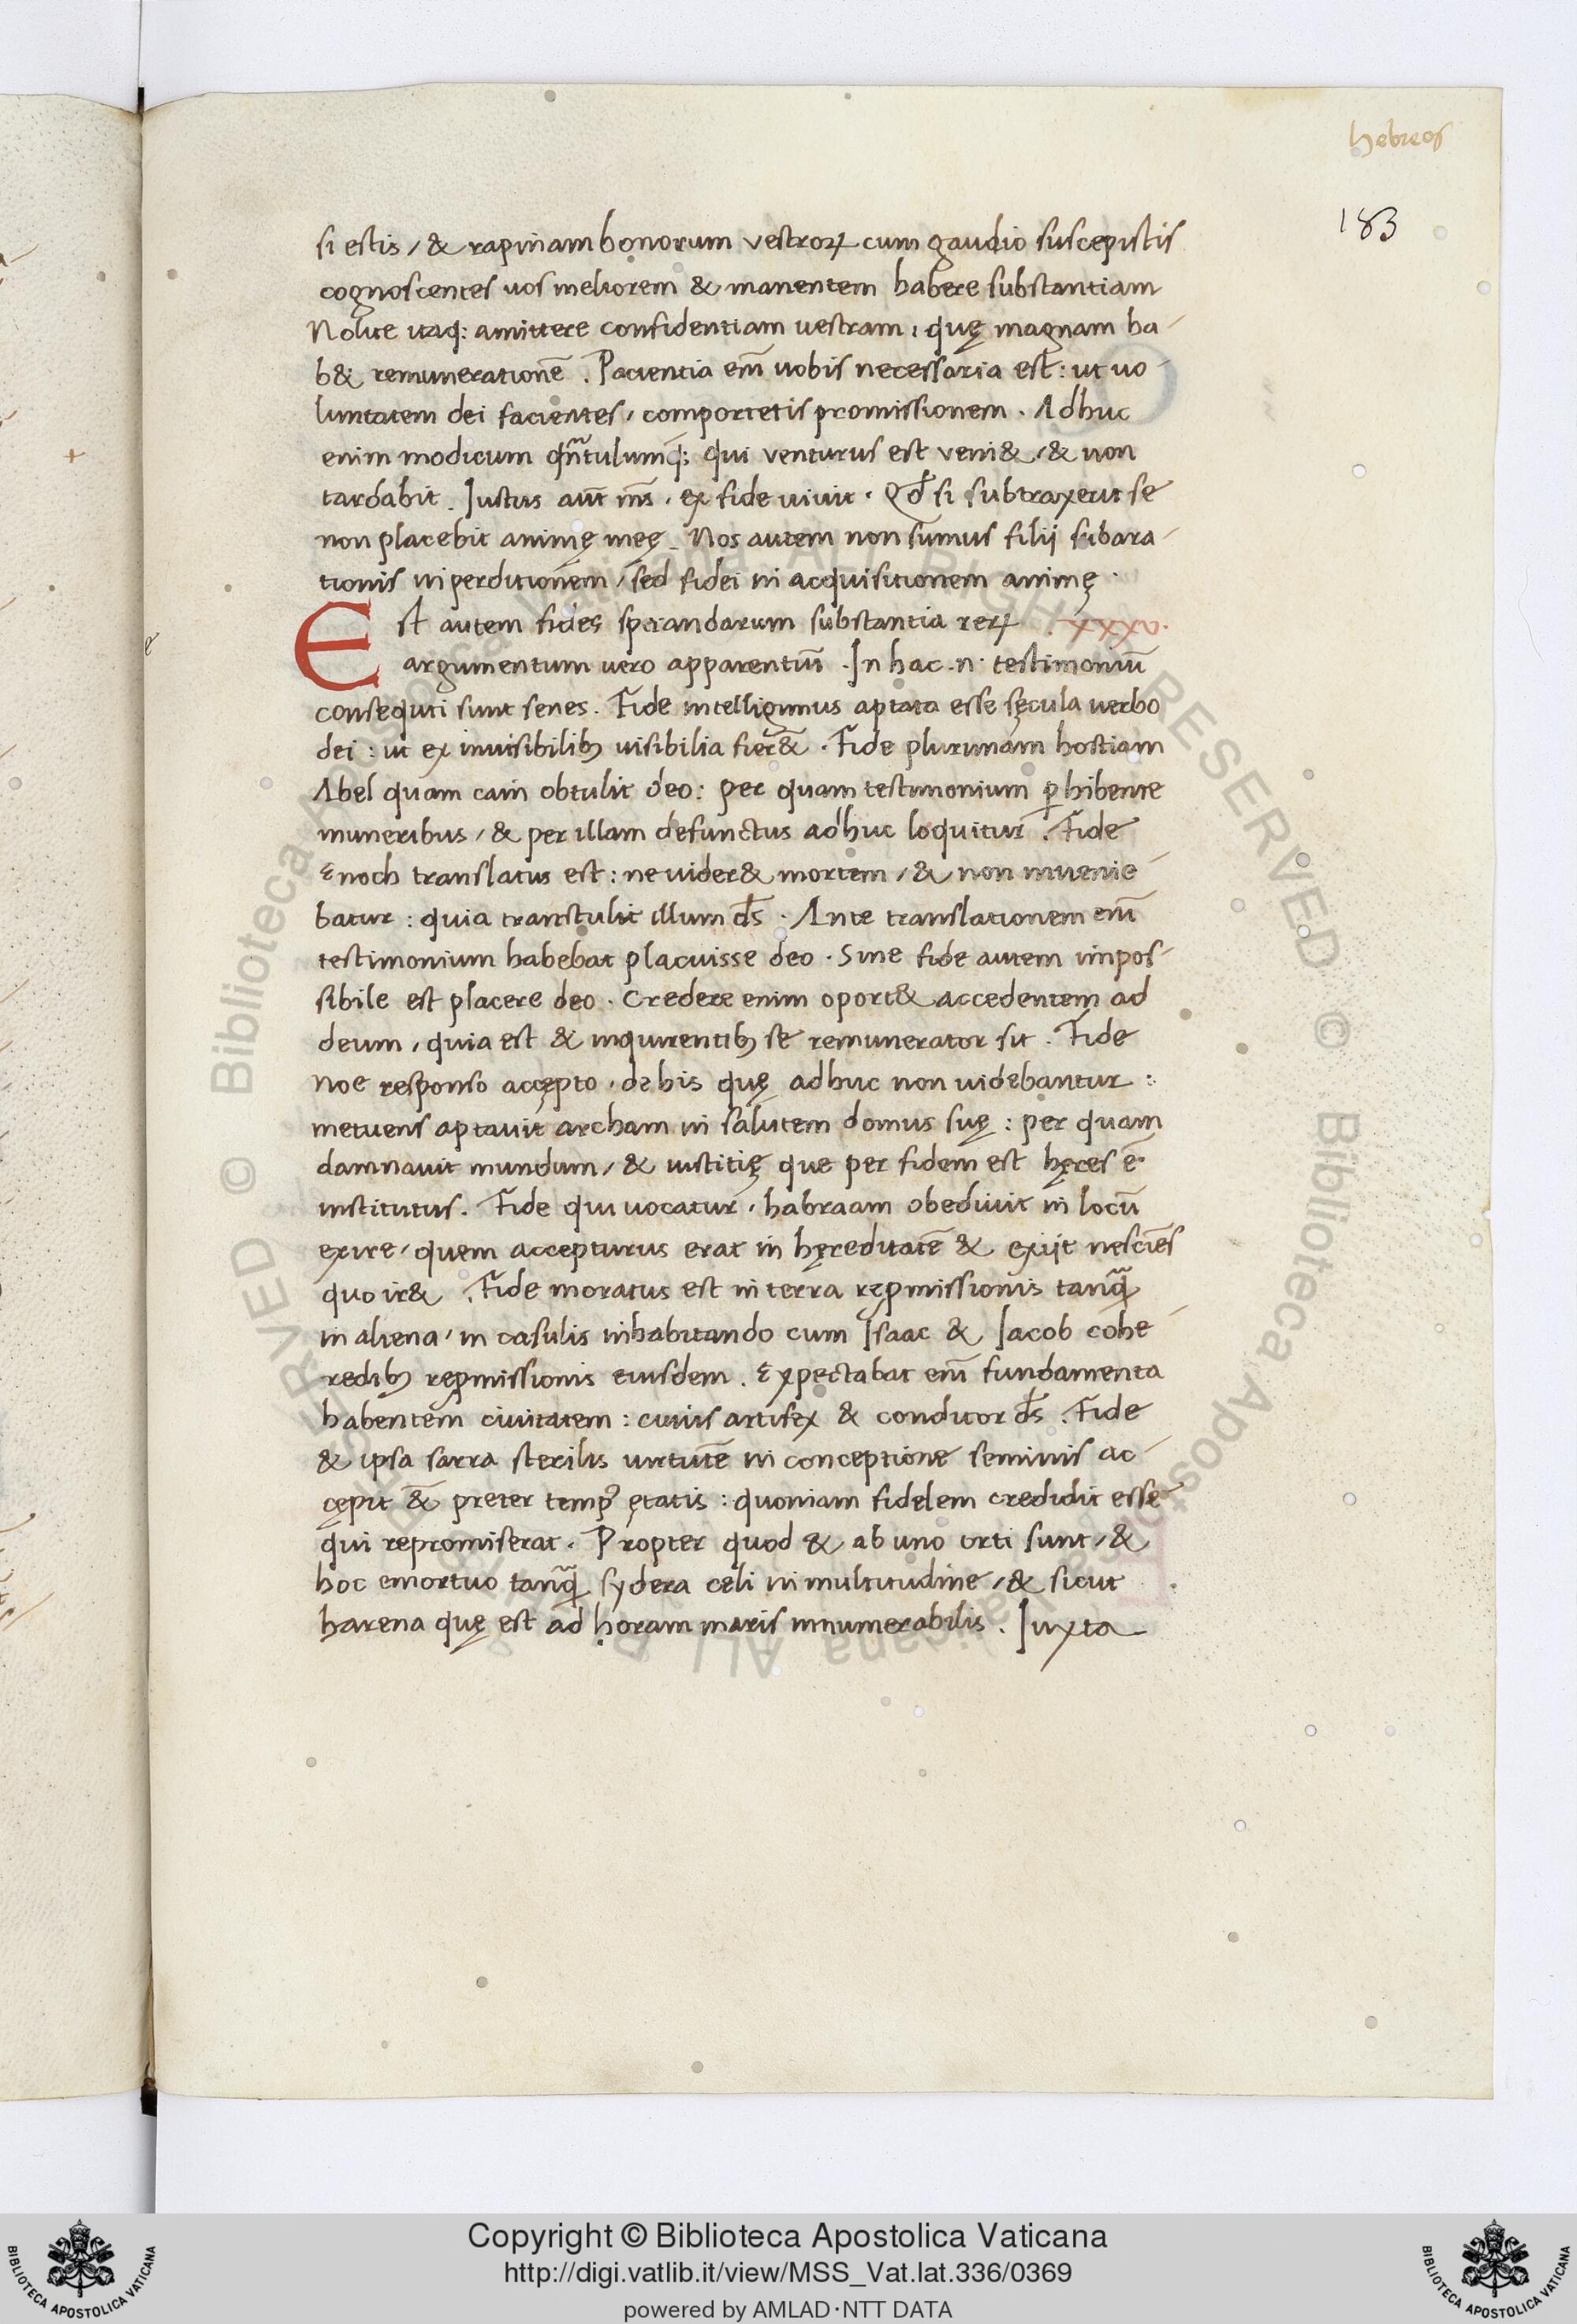 hebreos
183
si estis, & rapinam bonorum vestroꝝ cum gaudio suscepistis
cognoscentes uos meliorem & manentem habere substantiam
Nolite itaq; amittere confidentiam uestram: quę magnam ha-
b& remunerationē. Pacientia em̄ uobis necessaria est: ut uo-
luntatem dei facientes, comportetis promissionem. Adhuc
enim modicum qn̄tulumq; qui venturus est veni&, & non
tardabit. Iustus aut̄ m̄s, ex fide uiuit. Qđ si subtraxerit se
non placebit animę męę. Nos autem non sumus filij subara-
tionis in perditionem, sed fidei in acquisitionem animę.
Est autem fides sperandarum substantia reꝝ .xxxv.
argumentum uero apparentiū. In hac .n. testimoniū
consequti sunt senes. Fide intelligimus aptata esse sęcula uerbo
dei: ut ex inuisibilibꝫ uisibilia fier&. Fide plurimam hostiam
Abel quam cain obtulit deo: per quam testimonium ꝑhibente
muneribus, & per illam defunctus adhuc loquitur. Fide
Enoch translatus est: ne uider& mortem, & non inuenie-
batur: quia transtulit illum d̄s. Ante translationem em̄
testimonium habebat placuisse deo. Sine fide autem impos-
sibile est placere deo. Credere enim oport& accedentem ad
deum, quia est & inquirentibꝫ se remunerator sit. Fide
Noe responso accępto, de his quę adhuc non uidebantur:
metuens aptauit archam in salutem domus suę: per quam
damnauit mundum, & iustitię que per fidem est hęres ē
institutus. Fide qui uocatur, habraam obediuit in locū
exire, quem accepturus erat in hęreditatē & exijt nesciēs
quo ir&. Fide moratus est in terra reꝓmissionis tanq̄
in aliena, in casulis inhabitando cum Isaac & Iacob cohe-
redibꝫ reꝓmissionis eiusdem. Expectabat em̄ fundamenta
habentem ciuitatem: cuius artifex & conditor d̄s. Fide
& ipsa sarra sterilis uirtutē in conceptione seminis ac-
cępit & preter temp⁹ ętatis: quoniam fidelem credidit esse
qui repromiserat. Propter quod & ab uno orti sunt, &
hoc emortuo tanq̄ sydera celi in multitudine, & sicut
harena quę est ad horam maris innumerabilis. Iuxta
Copyright © Biblioteca Apostolica Vaticana
http://digi.vatlib.it/view/MSS_Vat.lat.336/0369
powered by AMLAD·NTT DATA